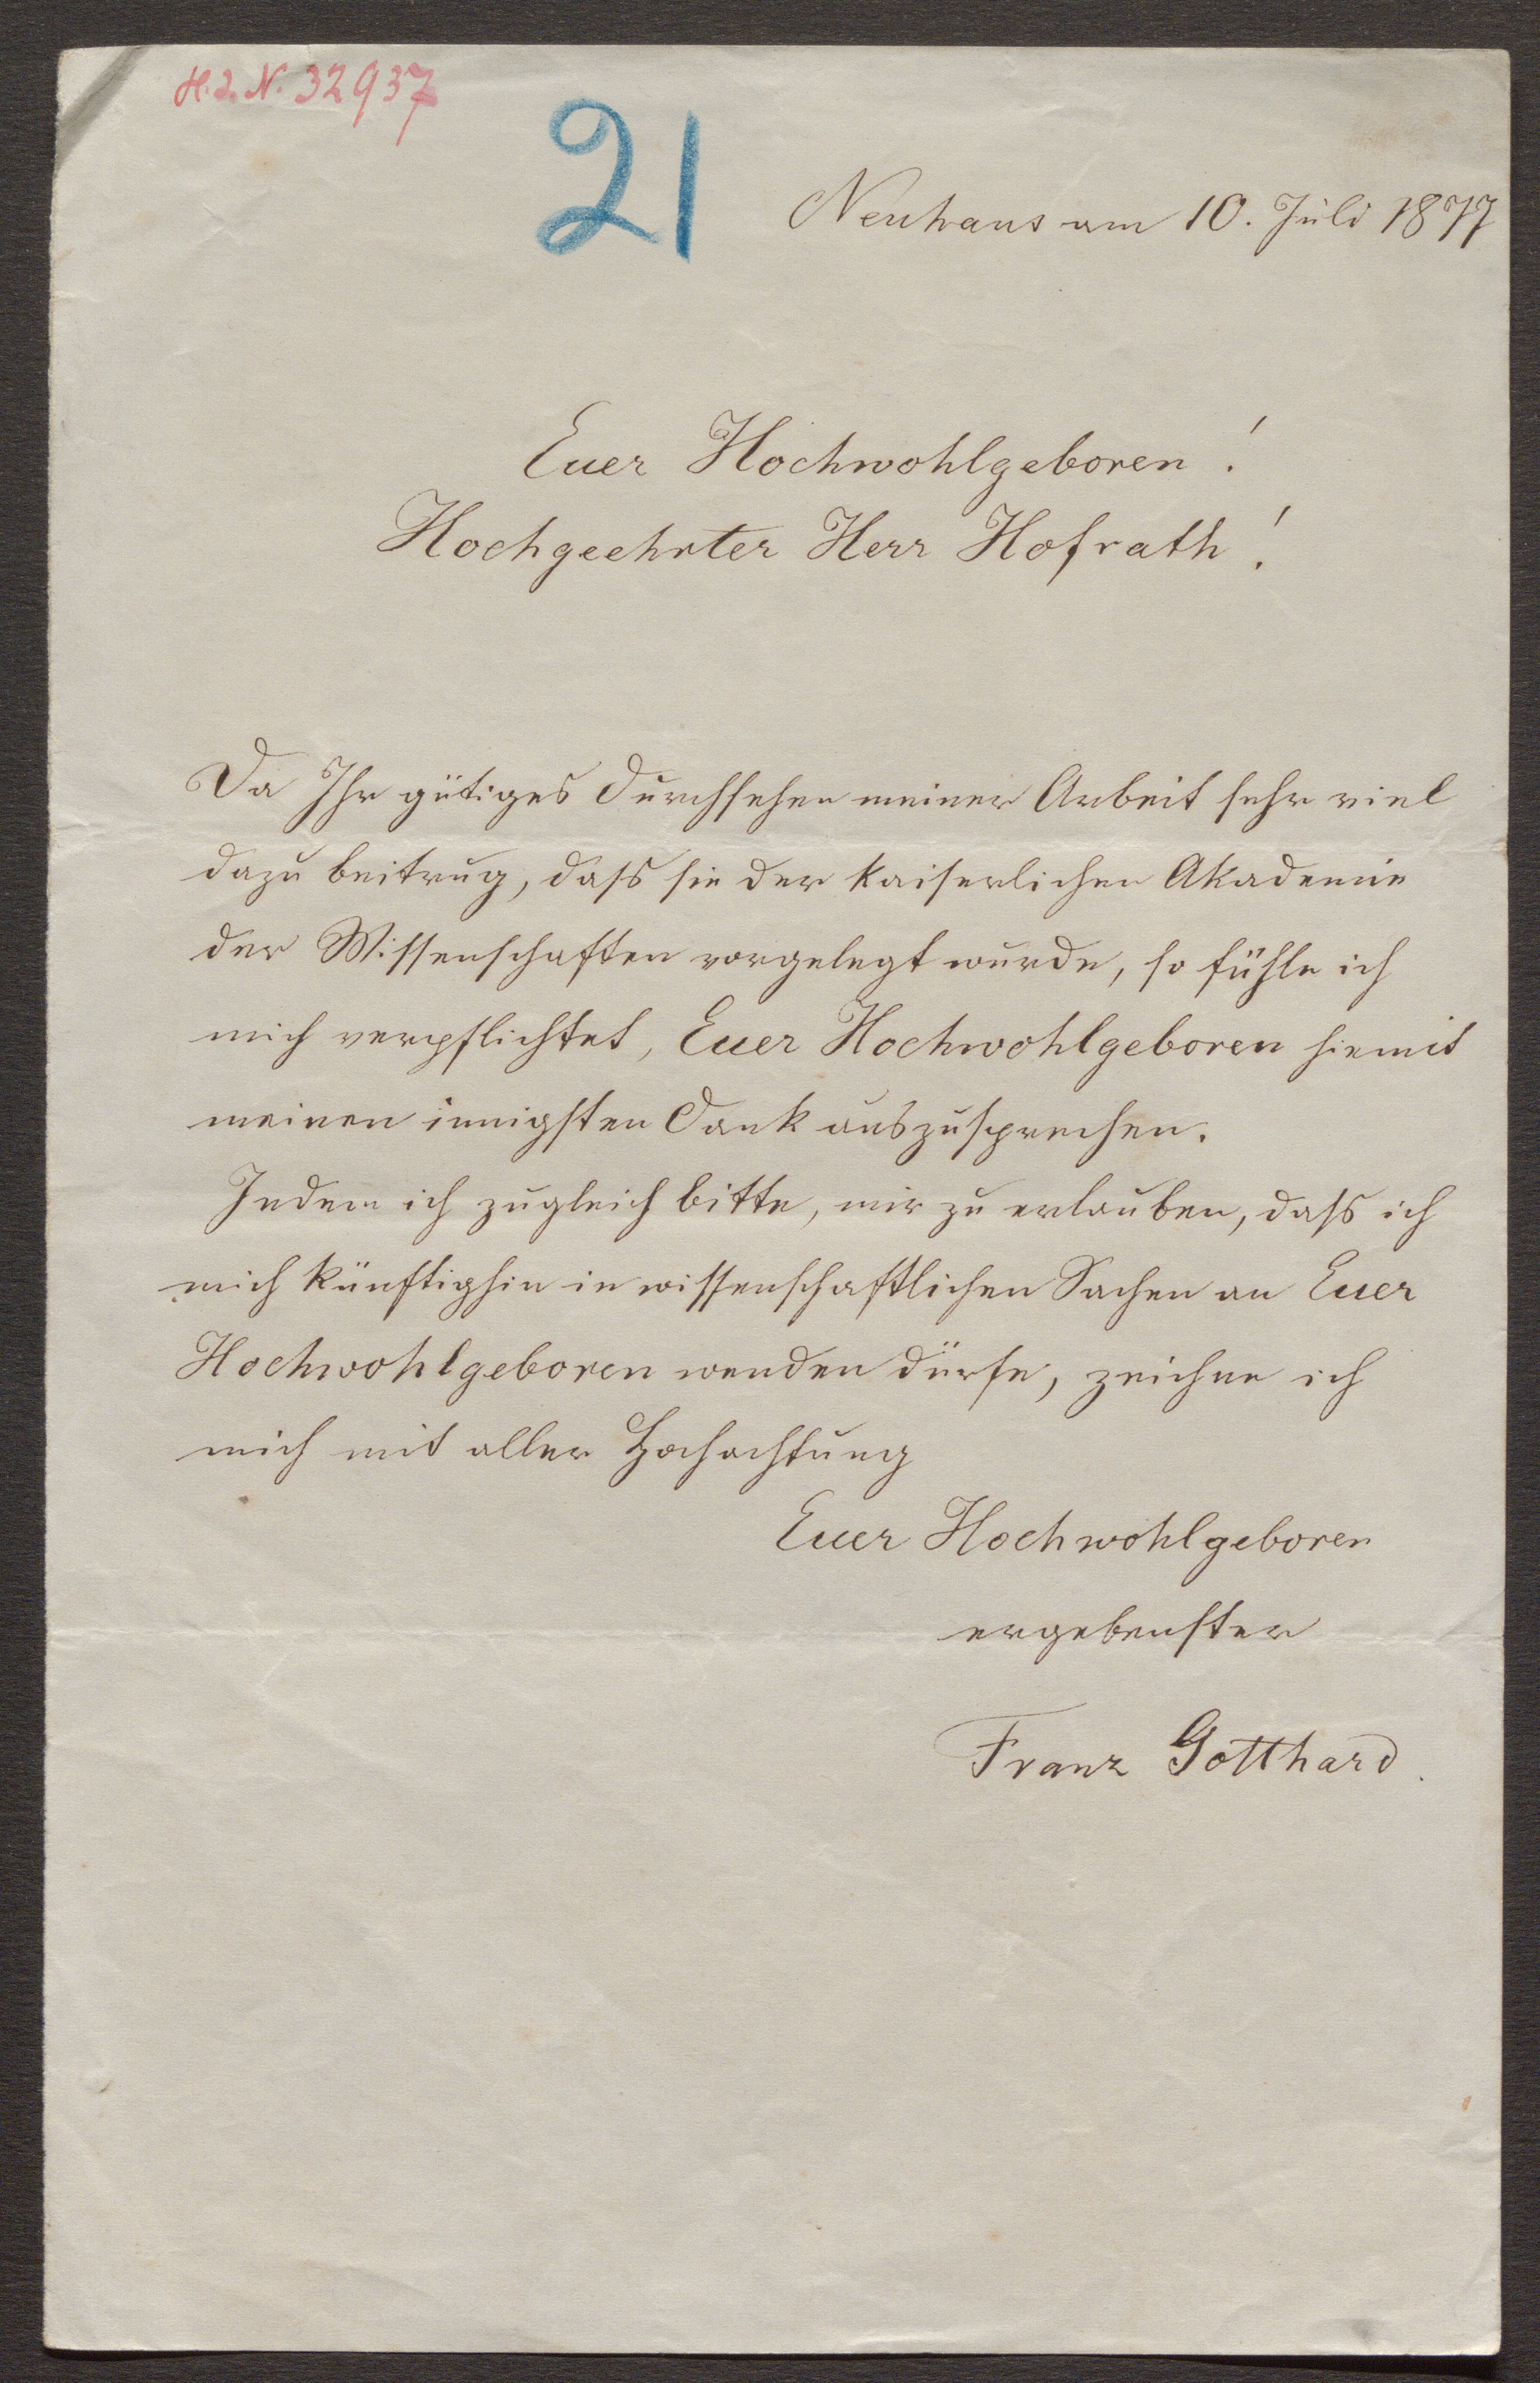 H.I.N. 32937
21
Neuhaus am 10. Juli 1877
Euer Hochwohlgeboren!
Hochgeehrter Herr Hofrath!
Da Ihr gütiges Durchsehen meiner Arbeit sehr viel
dazu beitrug, dass sie der kaiserlichen Akademie
der Wissenschaften vorgelegt wurde, so fühle ich
mich verpflichtet, Euer Hochwohlgeboren hiemit
meinen innigsten Dank auszusprechen.
Indem ich zugleich bitte, mir zu erlauben, dass ich
mich künftighin in wissenschaftlichen Sachen an Euer
Hochwohlgeboren wenden dürfe, zeichne ich
mich mit aller Hochachtung
Euer Hochwohlgeboren
ergebenster
Franz Gotthard.